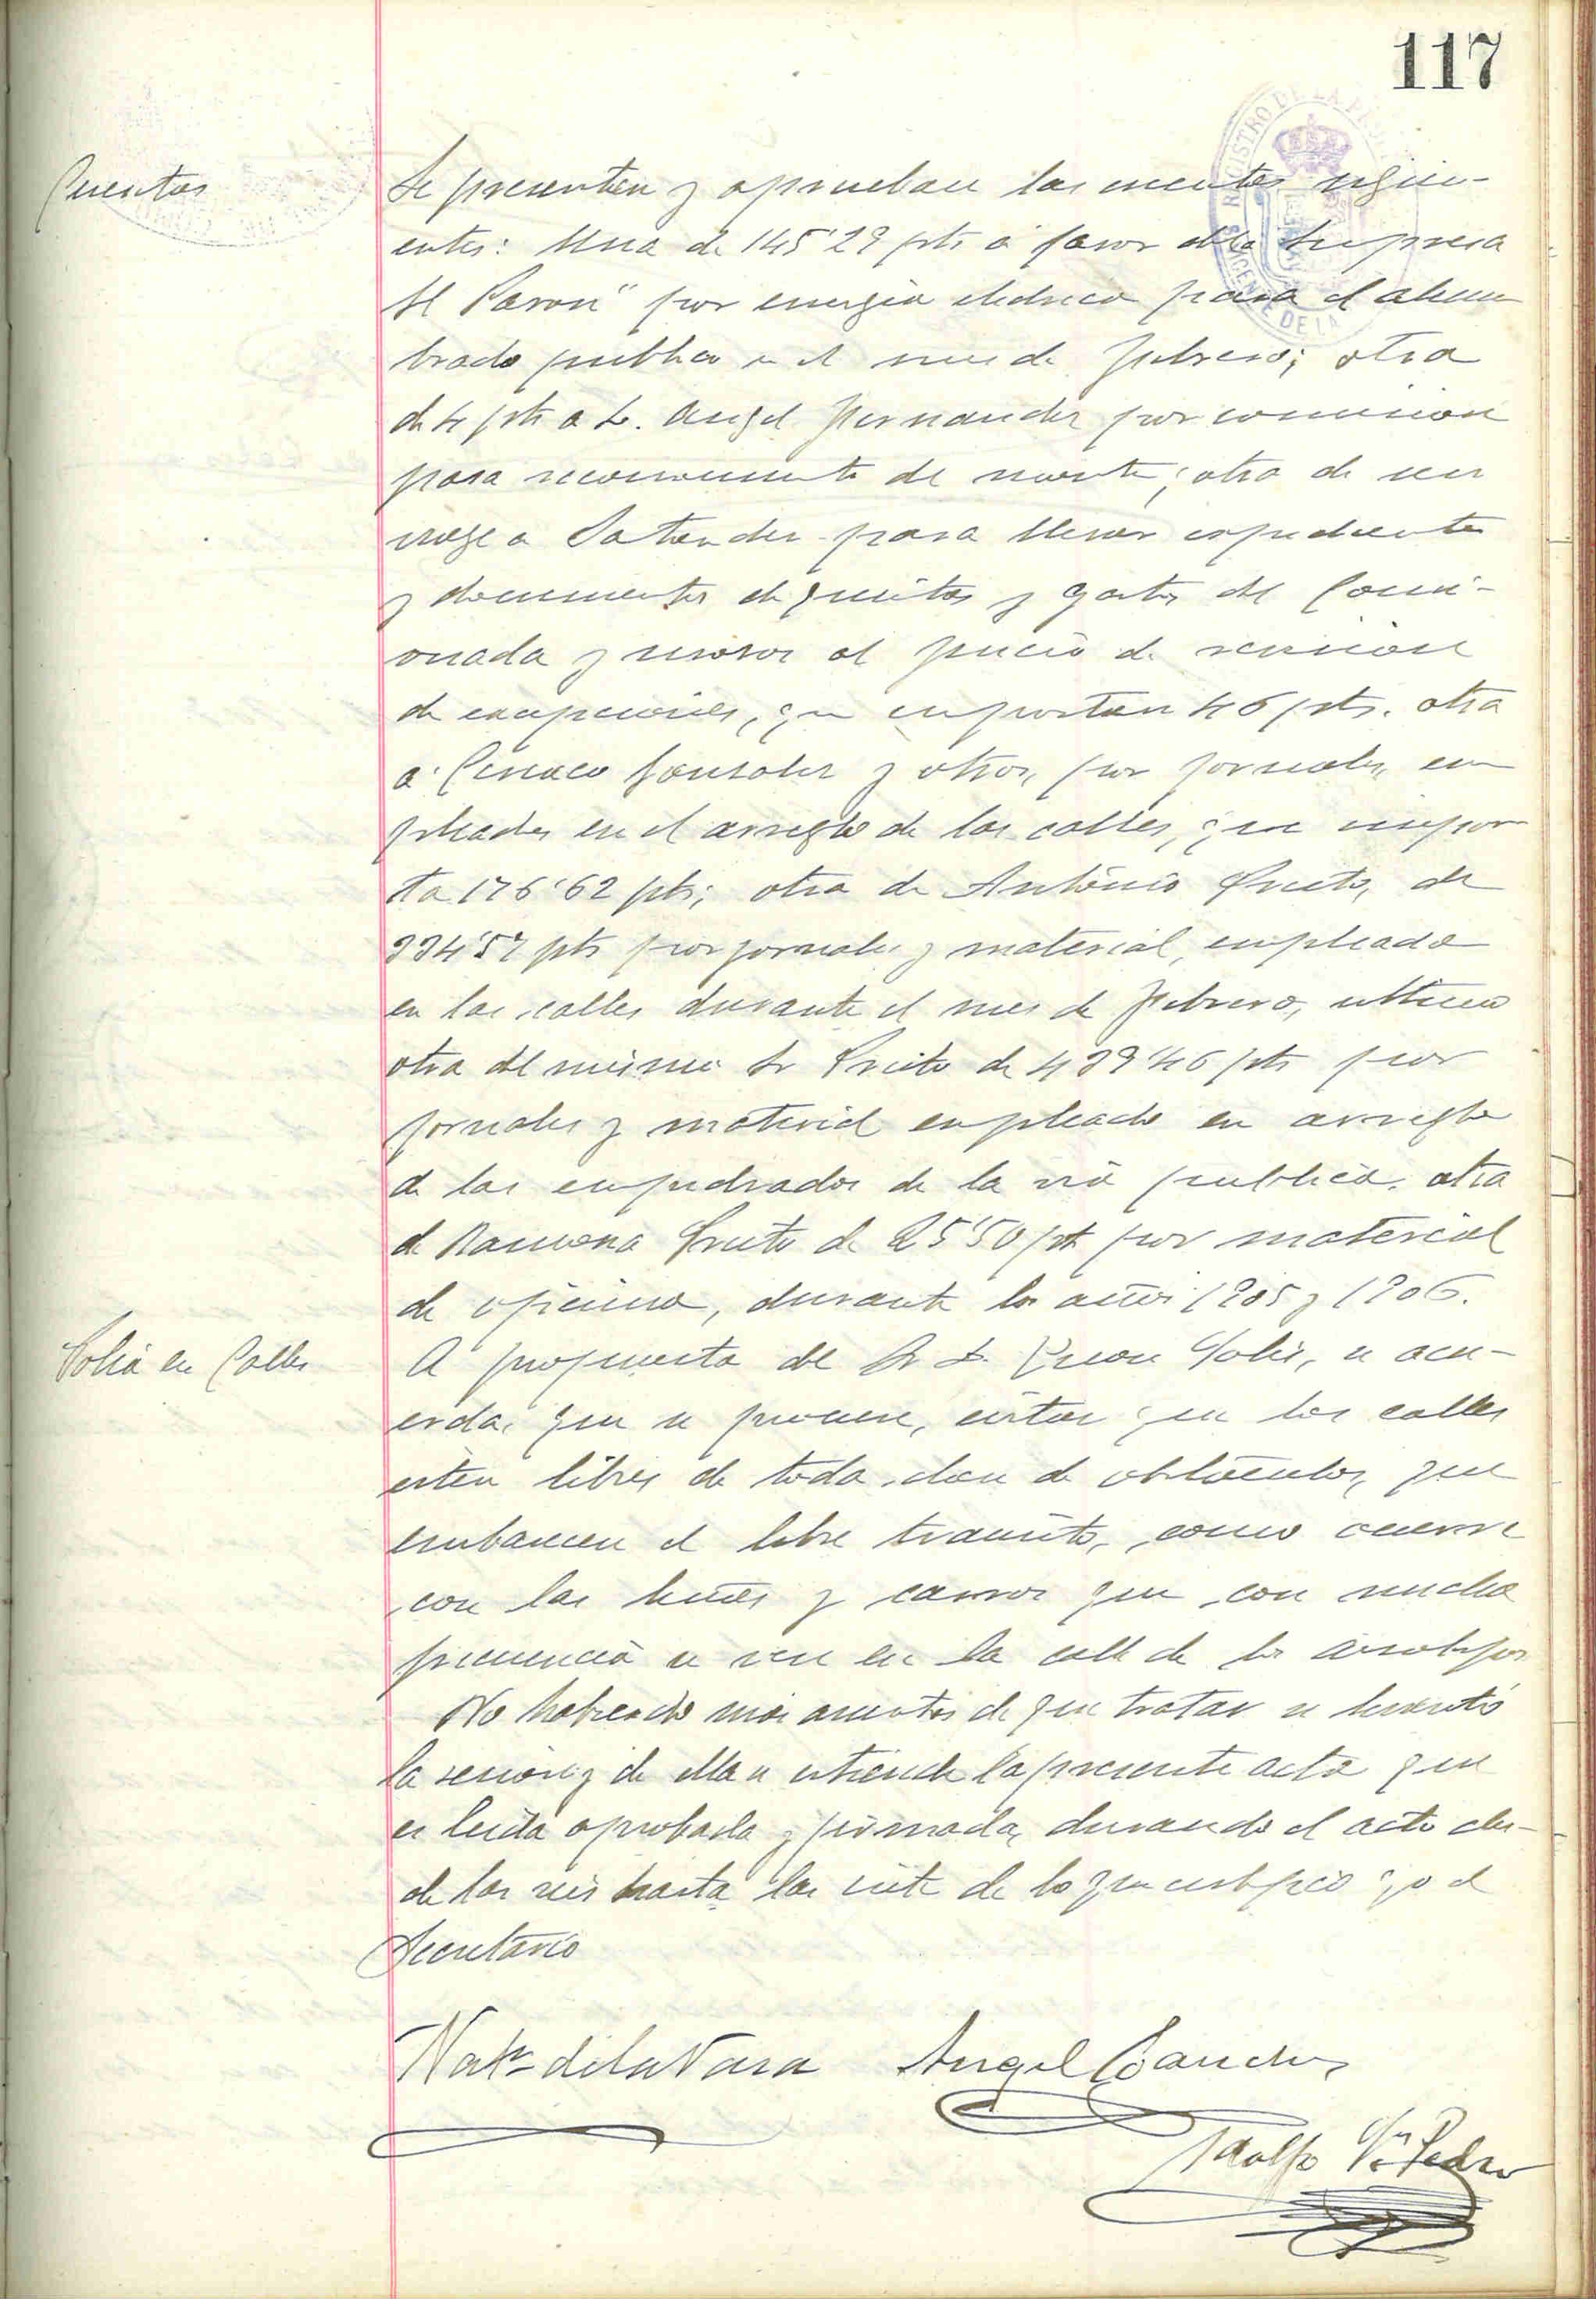 117
Cuentas
Se presentan y aprueban las cuentas sigui-
entes: Una de 145'29 pts á favor de la Empresa
El Pavon" por energia electrica para el alum
brado publico en el mes de Febrero; otra
de 4 pts a D. Angel Hernandez por comision
para reconocimiento de monte; otra de un
viaje a Satander para llevar expedientes
y documentos de quintas y gastos del Comisi-
onado y al juicio de revision
de excepciones, que importan 46 pts. otra
a Ciriaco Gonzalez y otros, por jornales, em
pleados en el arreglo de las calles, que impor
ta 176'62 pts; otra de Antonio Prieto, de
334'57 pts por jornales y material, empleado
en las calles durante el mes de Febrero, ultimo
otra del mismo Sr Prieto de 439'46 pts por
jornales y material empleado en arreglo
de los empedrados de la via publica. otra
de Ramona Prieto de 25'50 pts por material
de oficina, durante los años 1905 y 1906.
Policia en Calles
A propuesta del Sr D. Solis, se acu-
erda, que se procure, evitar que las calles
esten libres de toda clase de obstáculos, que
embaracen el libre transito, como ocurre
con las y carros que con mucha
frecuencia se ven en la calle de los
No habiendo mas asuntos de que tratar se levantó
la sesion y de ella se estiende la presente acta que
es leida aprobada y firmada, durando el acto des-
de las seis hasta las siete de lo que certifico yo el
Secretario
Nat^o de la Vara Angel Sanchez
Adolfo S^n Pedro